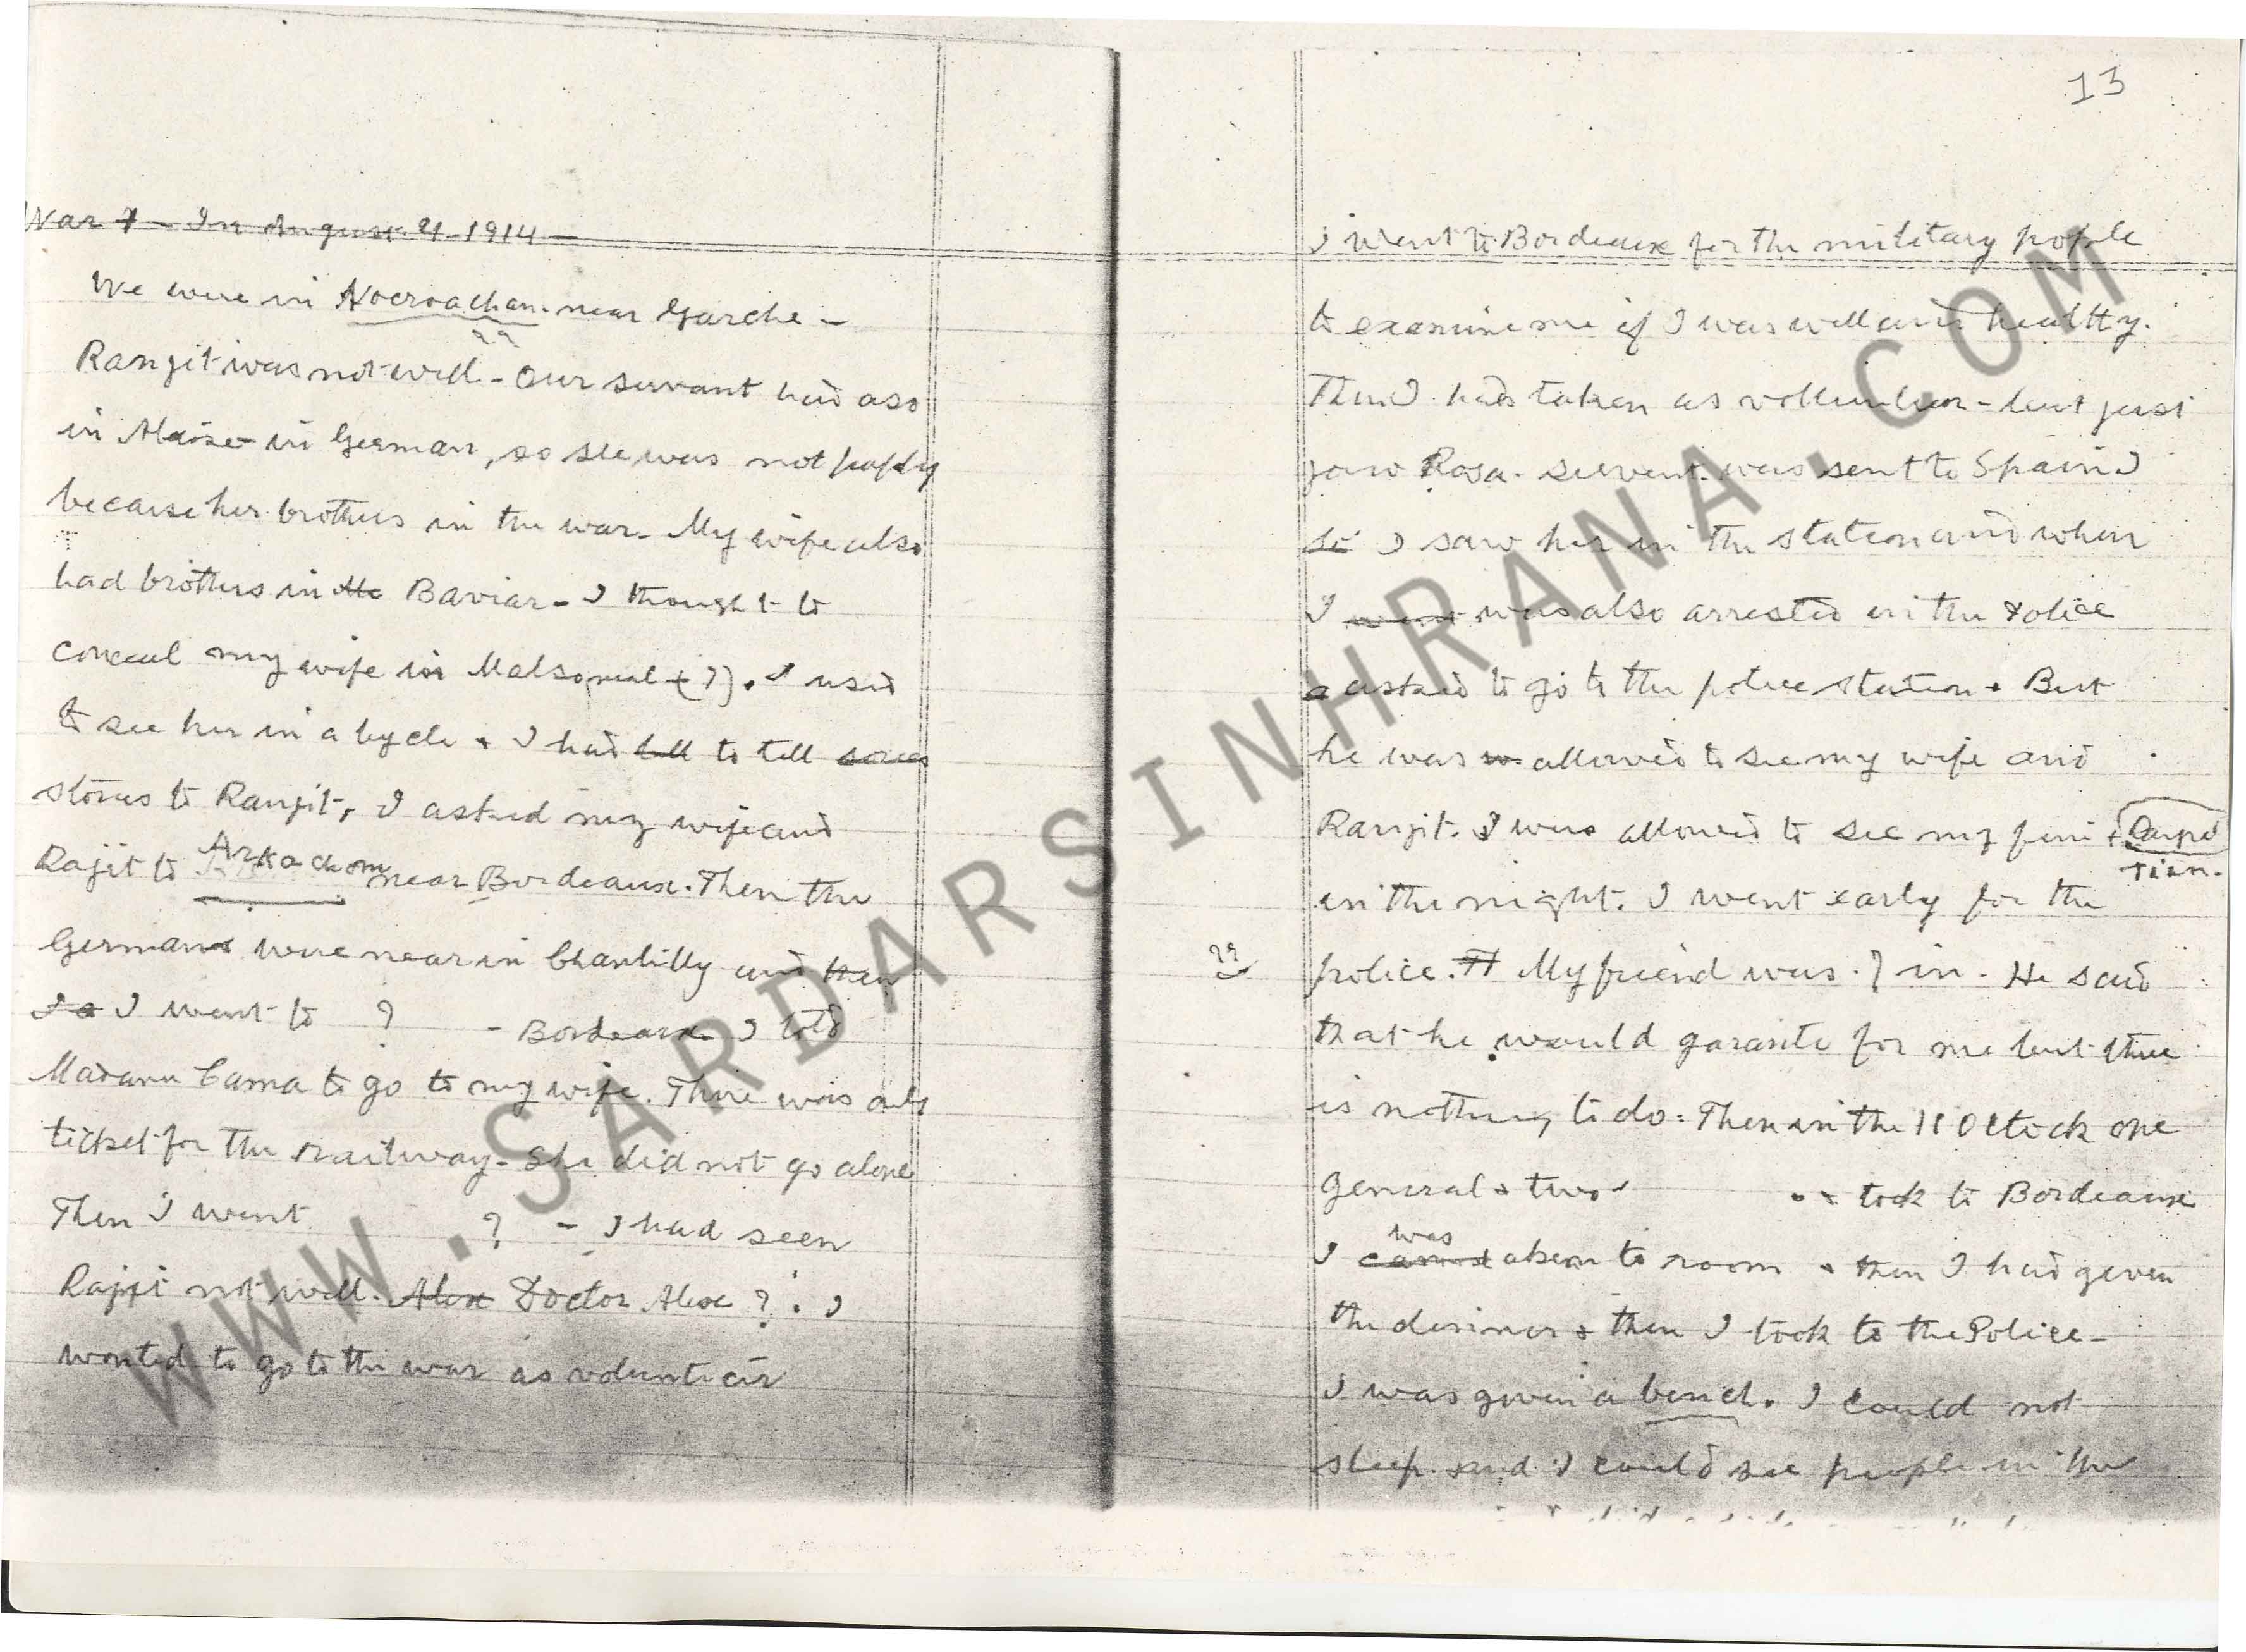 War 1 - In August 4 - 1914 -
We were in near Garche -
Ranjit was not well - Our servant had aso
in in German, so she was not
because her brothers in the war - My wife also
had brothers in the Baviar - I thought to
conceal my wife in (?). I used
to see her in a bycle + I had tell to tell
stories to Ranjit, I asked my wife and
Rajit to Arkachom near Bordeaux. Then the
Germans were near in Chantilly and then
I went to ? - Bordeaux I told
Madame Cama to go to my wife. There was only
ticket for the railway - She did not go alone
Then I went ? - I had seen
Rajit not well. Alex Doctor Alex ? . I
wonted to go to the war as volunteair
13
I went to Bordeaux for the military pople
to examine me if I was well and healthy.
Then I had taken as - but just
Rosa - servent was sent to Spain I
I saw her in the station and when
I went was also arrested in the Police
asked to go to the police station + But
he was allowed to see my wife and
Ranjit. I was allowed to see my +
in the night. I went early for the
?? police. My friend was ? in - He said
that he would garante for me but there
is nothing to do : Then in the 11 O Clock one
General + two took to Bordeaux
was
I taken to room + then I had given
the + then I took to the Police -
I was given a bench. I could not
sleep and I could see people in the
WWW.SARDARSINHRANA.COM